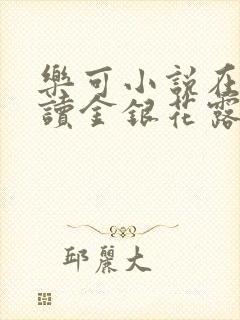 樂可小說在
讀金銀花露
邱麗大